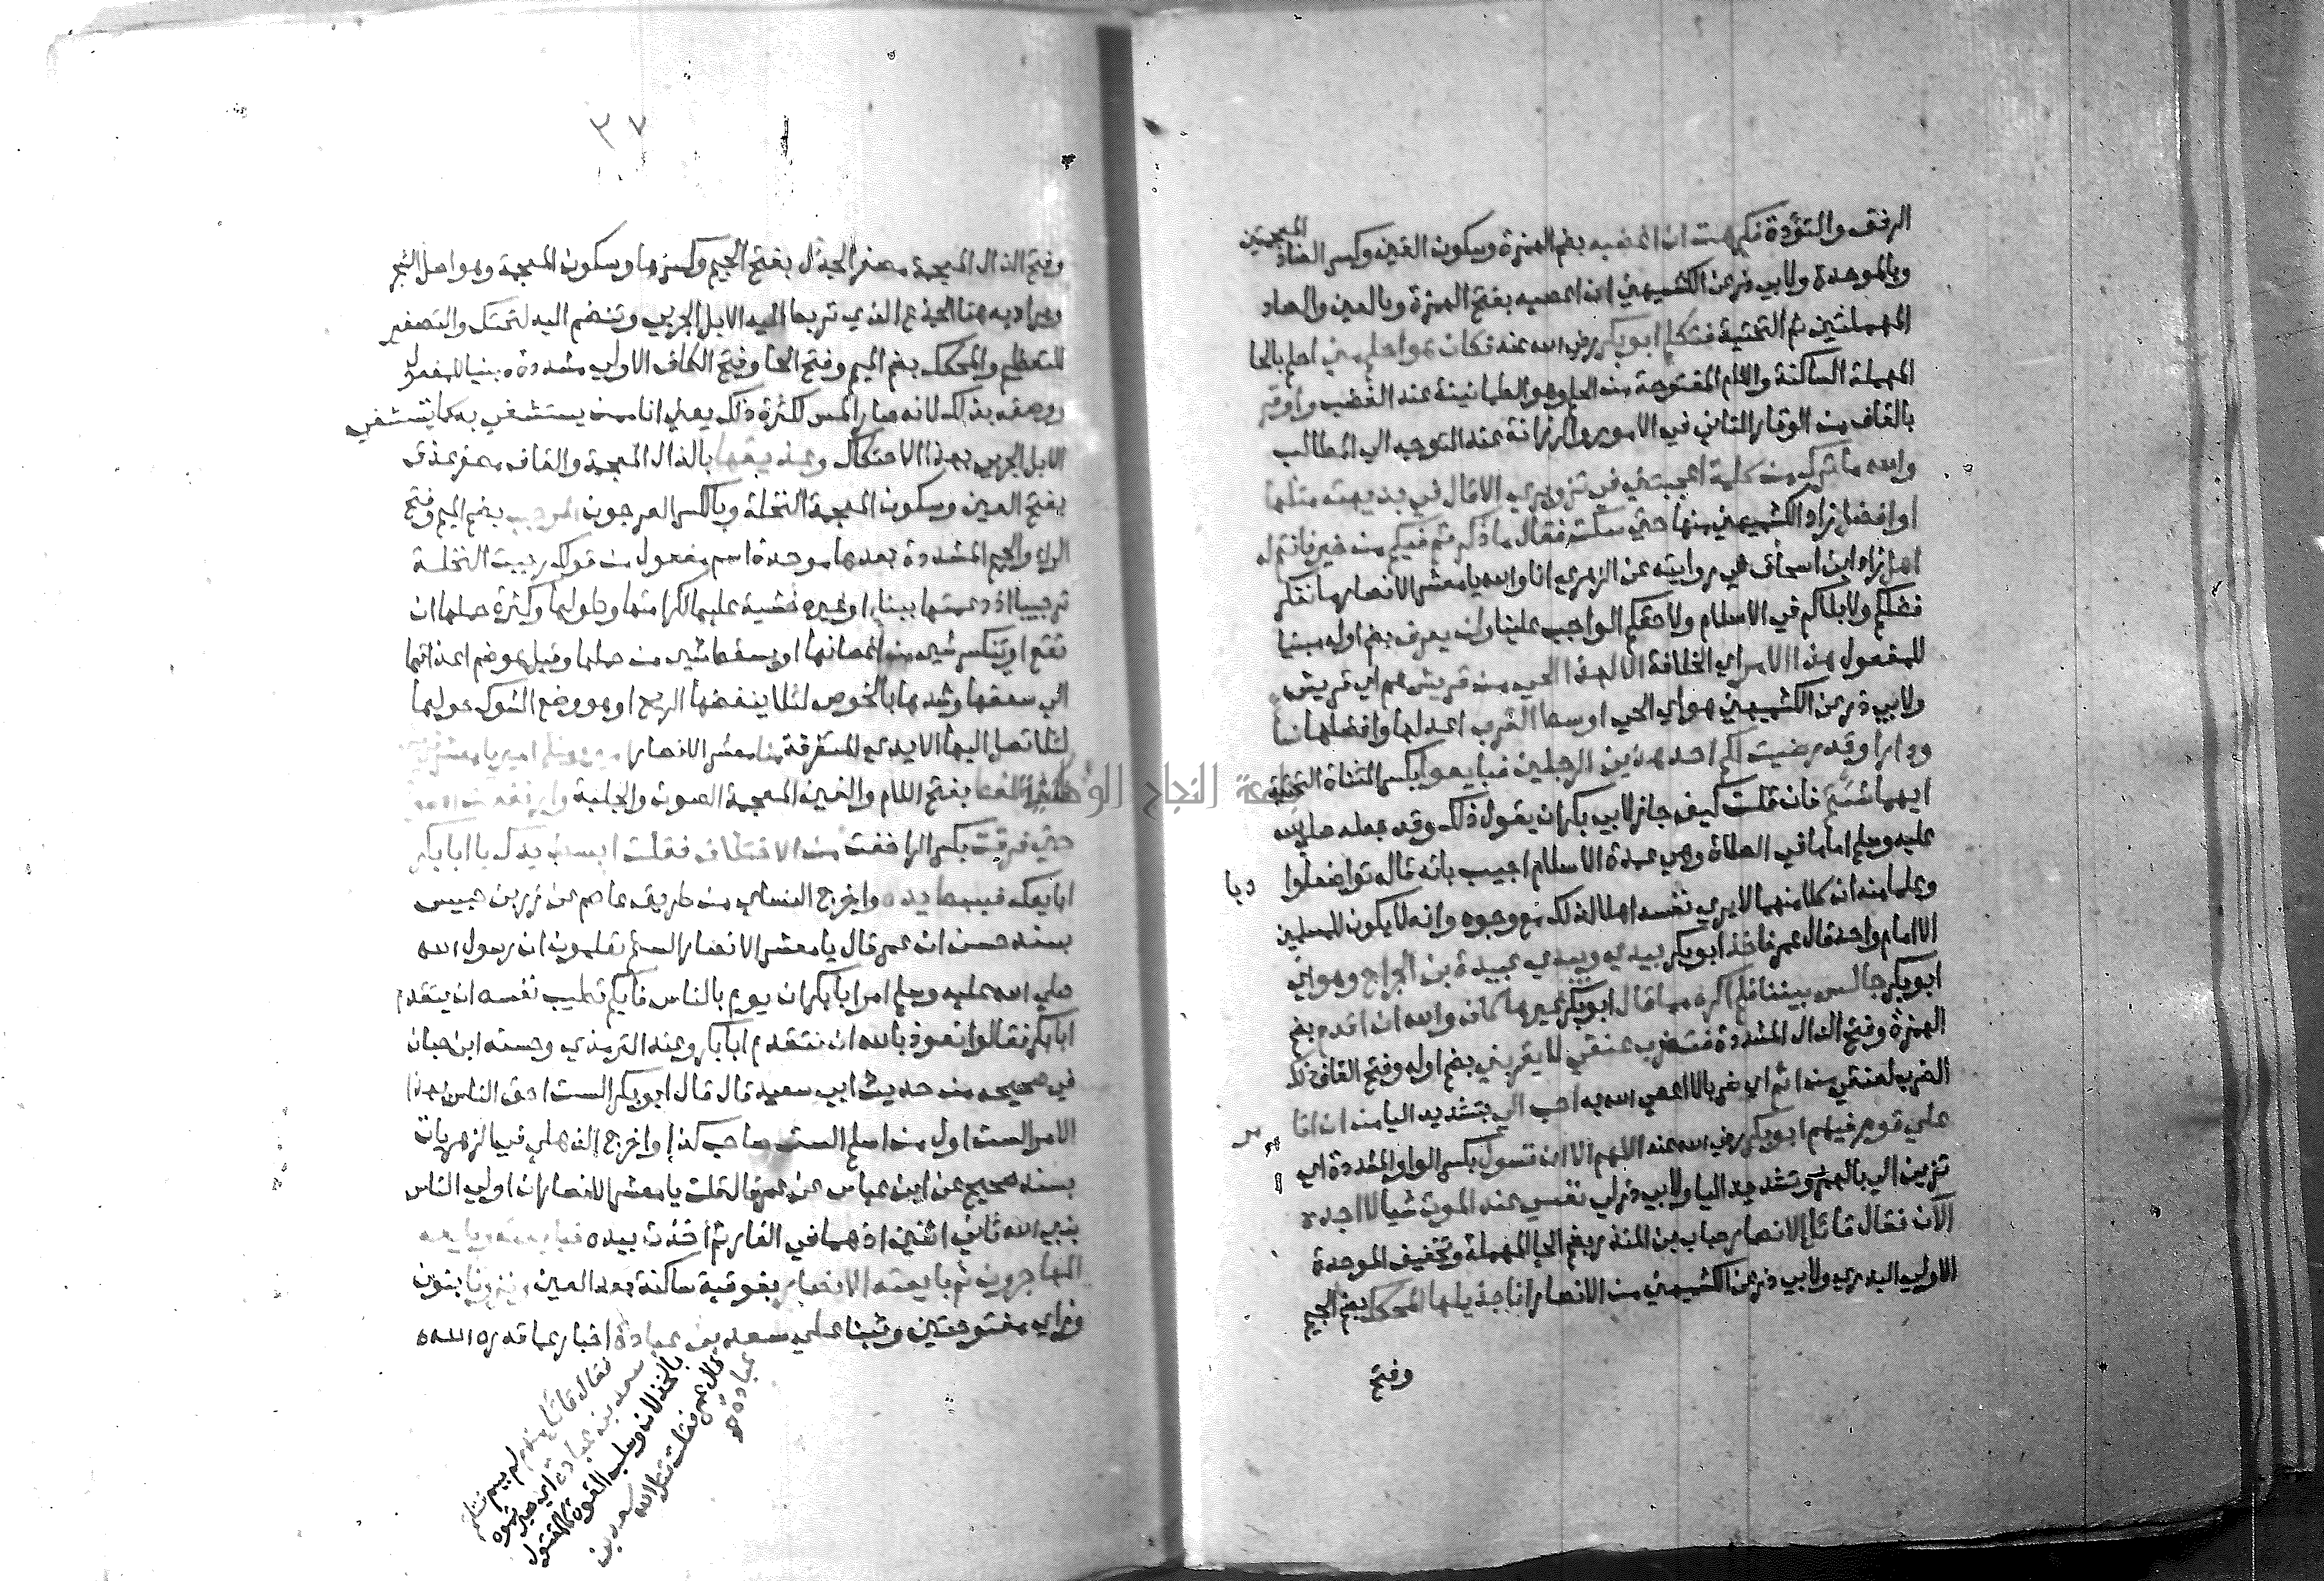 الرفق والتؤدة فكرهت ان اغضبه بضم الهمزة وسكون الغين وكسر الضاد المعجمتين
وبالموحدة ولابي ذر عن الكشميهني ان اعصيه بفتح الهمزة وبالعين والصاد
المهملتين ثم التحتية فتكلم ابو بكر رضي الله عنه فكان هو احلم مني احلم بالحا
المهملة الساكنة واللام المفتوحة من الحلم وهو الطمانينة عند الغضب واوقر
بالقاف من الوقار التاني في الامور والرزانة عند التوجه الي المطالب
والله ما ترك من كلمة اعجبتني في تزويري الا قال في بديهته مثلها
او افضل زاد الكشميهني منها حتي سكت فقال ما ذكرتم فيكم من خير فانتم له
اهل زاد ابن اسحاق في روايته عن الزهري انا والله يا معشر الانصار ما ننكر
فضلكم ولا بلاكم في الاسلام ولا حقكم الواجب علينا ولن يعرف بضم اوله مبنيا
للمفعول هذا الامر اي الخلافة الا لهذا الحي من قريش هم اي قريش
ولابي ذر عن الكشميهني هو اي الحي اوسط العرب اعدلها وافضلها نسبا
ودارا وقد رضيت لكم احد هذين الرجلين فبايعوا بكسر المثناة التحتية
ايهما شئتم فان قلت كيف جاز لابي بكر ان يقول ذلك وقد جعله صلي الله
عليه وسلم اماما في الصلاة وهي عمدة الاسلام اجيب بانه قاله تواضعا وادبا
وعلما منه ان كلا منهما لا يري نفسه اهلا لذلك مع وجوده وانه لا يكون للمسلمين
الا امام واحد قال عمر فاخذ ابو بكر بيدي وبيدي عبيدة بن الجراح وهو اي
ابو بكر جالس بيننا فلم اكره مما قال ابو بكر غيرها كان والله ان اقدم بضم
الهمزة وفتح الدال المشددة فتضرب عنقي لا يقربني بضم اوله وفتح القاف ذلك
الضرب لعنقي من اثم اي ضربا لا اعصي الله به احب الي بتشديد اليا من ان اتامر
علي قوم فيهم ابو بكر رضي الله عنه اللهم الا ان تسول بكسر الواو المشددة اي
تزين الي بالهمز وتشديد اليا ولابي ذر لي نفسي عند الموت شيا لا اجده
الان فقال قائل الانصار حباب بن المنذر بضم الحا المهملة وتخفيف الموحدة
الاولي البدري ولابي ذر عن الكشميهني من الانصار انا جذيلها المحكك بضم الجيم
وفتح
٣٧
وفتح الذال المعجمة مصغر الجذل بفتح الجيم وكسرها وسكون المعجمة وهو اصل الشجر
ويراد به هنا الجذع الذي تربط اليه الابل الجربي وتنضم اليه لتحتك والتصغير
للتعظيم والمحكك بضم الميم وفتح الحا وفتح الكاف الاولي مشددة مبنيا للمفعول
ووصفه بذلك لانه صار املس لكثرة ذلك يعني انا ممن يستشفي به كما تستشفي
الابل الجربي بهذا الاحتكاك وعذيقها بالذال المعجمة والقاف مصغر عذق
بفتح العين وسكون المعجمة النخلة وبالكسر العرجون المرجب بضم الميم وفتح
الراء والجيم المشددة بعدها موحدة اسم مفعول من قولك رجبت النخلة
ترجيبا اذا دعمتها ببناء او غيره خشية عليها لكرامتها وطولها وكثرة حملها ان
تقع او ينكسر شي من اغصانها او يسقط شي من حملها وقيل هو ضم اعذاقها
الي سعفها وشدها بالخوص لئلا ينفضها الريح او هو وضع الشوك حولها
لئلا تصل اليها الايدي المتفرقة منا معشر الانصار امير ومنكم امير يا معشر قريش
فكثر اللغط بفتح اللام والغين المعجمة الصوت والجلبة وارتفعت الاصوات
حتي فرقت بكسر الرا خفت من الاختلاف فقلت ابسط يدك يا ابا بكر
ابايعك فبسط يده واخرج النسائي من طريق عاصم عن زر بن حبيش
بسند حسن ان عمر قال يا معشر الانصار الستم تعلمون ان رسول الله
صلي الله عليه وسلم امر ابا بكر ان يوم بالناس فايكم تطيب نفسه ان يتقدم
ابا بكر فقالوا نعوذ بالله ان نتقدم ابا بكر وعند الترمذي وحسنه ابن حبان
في صحيحه من حديث ابي سعيد قال قال ابو بكر الست احق الناس بهذا
الامر الست اول من اسلم الست صاحب كذا واخرج الذهلي في الزهريات
بسند صحيح عن ابن عباس عن عمر قال قلت يا معشر الانصار ان اولي الناس
بنبي الله ثاني اثنين اذ هما في الغار ثم اخذت بيده فبايعته وبايعه
المهاجرون ثم بايعته الانصار بفوقية ساكنة بعد العين ونزونا بنون
وزاي مفتوحتين وثبنا علي سعد بن عبادة اخبار عما قدره الله
فقال قائل منهم لم يسم قتلتم
سعد بن عبادة اي صيرتموه
بالخذلان وسلب القوة كالمقتول
قال عمر فقلت قتل الله سعد بن
عبادة
جامعة النجاح الوطنية